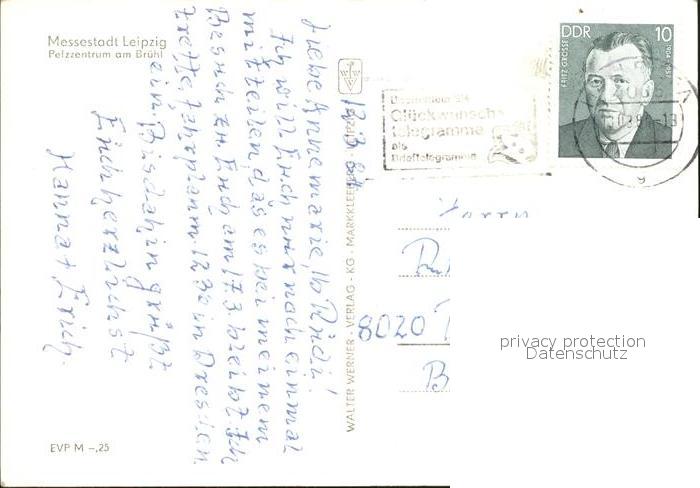 Messestadt Leipzig
Pelzzentrum am Brühl
12.3.84
Liebe Annemarie, lb Rudi!
Ich will Euch nur noch einmal
mitteilen, daß es bei meinem
Besuch zu Euch am 17.3. bleibt. Ich
treffe, fahrplanm. 12 32 in Dresden
ein. Bis dahin grüßt
Euch herzlichst
Hanna + Erich.
EVP M –,25
WALTER WERNER · VERLAG · KG · MARKKLEEBERG · LEIPZIG
Glückwunsch-
telegramme
als
Brieftelegramme
DDR 10
FRITZ GROSSE
1904 - 1957
8020
privacy protection
Datenschutz